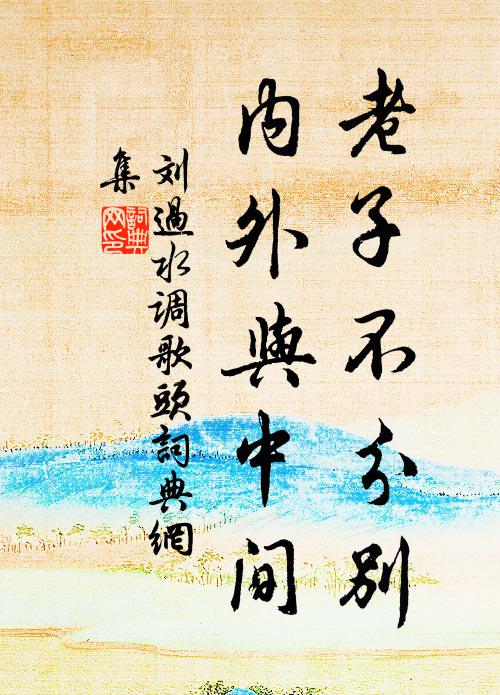 老子不分别
内外與中间
刘過水调歌頭詞典網
集
詞典
网印